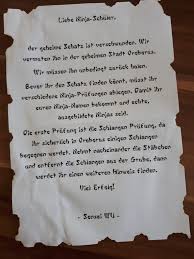 Liebe Ninja-Schüler,
der geheime Schatz ist verschwunden. Wir
vermuten ihn in der geheimen Stadt Oroboros.
Wir müssen ihn unbedingt zurück holen.
Bevor ihr den Schatz finden könnt, müsst ihr
verschiedene Ninja-Prüfungen ablegen. Damit ihr
euren Ninja-Namen bekommt und echte,
ausgebildete Ninjas seid.
Die erste Prüfung ist die Schlangen Prüfung, da
ihr sicherlich in Oroboros einigen Schlangen
begegnen werdet. Nehmt nacheinander die Stäbchen
und entfernt die Schlangen aus der Grube, dann
werdet ihr einen weiteren Hinweis finden.
Viel Erfolg!
- Sensei WU -